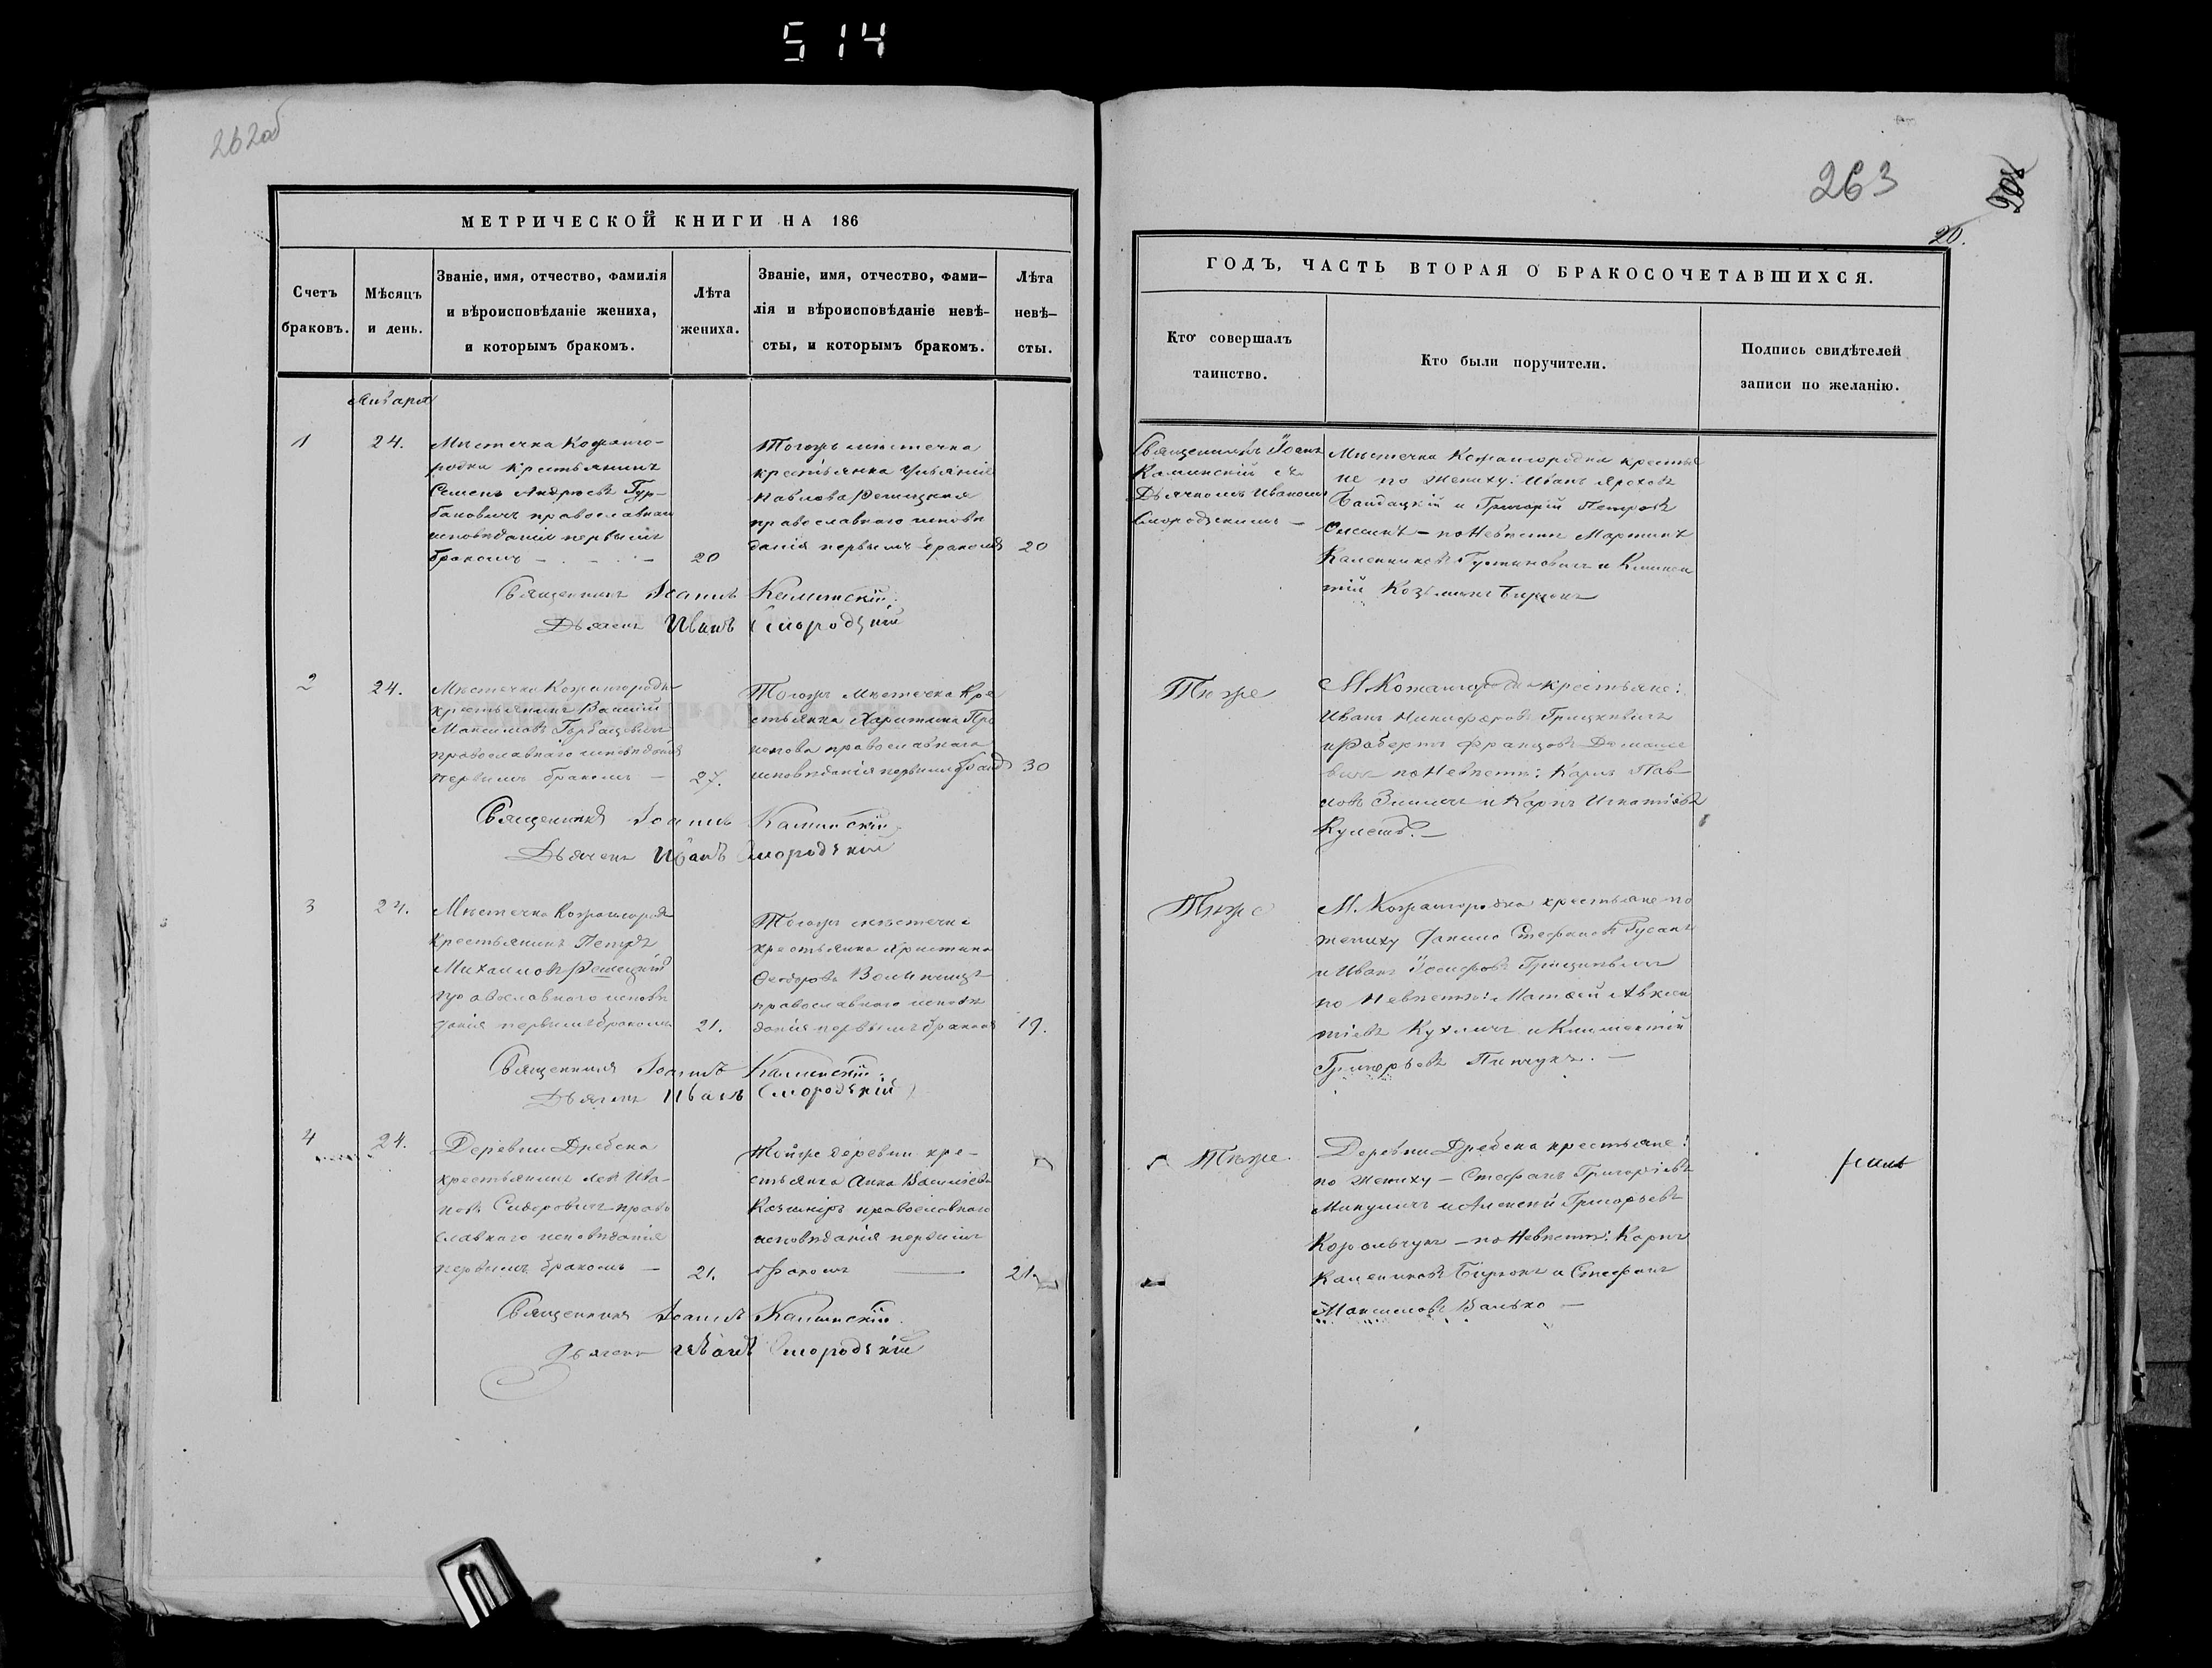 514
262об
МЕТРИЧЕСКОЙ КНИГИ НА 186
Счетъ браковъ.
Мѣсяцъ и день.
Званіе, имя, отчество, фамилія
и вѣроисповѣданіе жениха,
и которымъ бракомъ.
Лѣта жениха.
Званіе, имя, отчество, фами-
лія и вѣроисповѣданіе невѣ-
сты, и которымъ бракомъ.
Лѣта невѣ-
сты.
Января
1
24.
Мѣстечка Кожанго-
родка крестьянинъ
Семенъ Андреевъ Гур-
бановичъ православнаго
исповѣданія первымъ
бракомъ
20
Тогожъ мѣстечка
крестьянка Ульянія
Павлова Решецкая
православнаго исповѣ
данія первымъ бракомъ
20
Священникъ Іоаннъ Калинскій
Дьячекъ Иванъ Смородскій
2
24.
Мѣстечка Кожангородка
крестьянинъ Василій
Максимовъ
православнаго исповѣданія
первымъ бракомъ —
27.
Тогожъ мѣстечка кре
стьянка Харитина Про
копова православнаго
исповѣданія первымъ брак
30
Священникъ Іоаннъ Калинскій
Дьячекъ Иванъ Смородскій
3
24.
Мѣстечка Кожангородка
крестьянинъ Петръ
Михаиловъ Решецкій
православнаго исповѣ
данія первымъ бракомъ
21.
Тогожъ мѣстечка
крестьянка Христина
Ѳеодорова
православнаго исповѣ
данія первымъ бракомъ
19.
Священникъ Іоаннъ Калинскій
Дьячекъ Иванъ Смородскій
4
24.
Деревни Дребска
крестьянинъ Лев Ива-
новъ Сидоровичъ право
славнаго исповѣданія
первымъ бракомъ —
21.
Тойже деревни кре-
стьянка Анна Васильева
православнаго
исповѣданія первымъ
бракомъ
21.
Священникъ Іоаннъ Калинскій
Дьячекъ Иванъ Смородскій
263
20.
ГОДЪ, ЧАСТЬ ВТОРАЯ О БРАКОСОЧЕТАВШИХСЯ.
Кто совершалъ
таинство.
Кто были поручители.
Подпись свидѣтелей
записи по желанію.
Священникъ Іоаннъ
Калинскій съ
Дьячкомъ Иваномъ
Смородскимъ —
Мѣстечка Кожангородка крестья
не по жениху: Иванъ
и Григорій Петровъ
— по Невѣстѣ Мартинъ
Каленниковъ и Климен
тій Козьминъ
Тѣже
М. Кожангородка крестьяне:
Иванъ Никифоровъ Грицкевичъ
и Робертъ Францовъ
по Невѣстѣ: Карпъ Пав-
ловъ и Карпъ Игнатіевъ
Тѣже
М. Кожангородка крестьяне по
жениху Стефановъ Гусакъ
и Иванъ Іосифовъ Грицкевичъ
по Невѣстѣ: Матѳей Авксен
тіевъ и Климентій
Григорьевъ Пинчукъ. —
Тѣже.
Деревни Дребска крестьяне:
по жениху — Стефанъ Григорьевъ
Микуличъ и Алексей Григорьевъ
Корольчукъ — по Невѣстѣ: Карпъ
и Стефанъ
Максимовъ Валько —